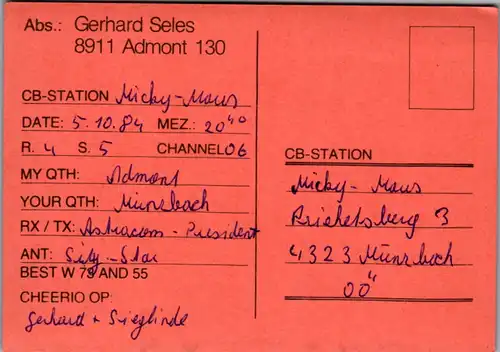 Abs.: Gerhard Seles
8911 Admont 130
CB-STATION Micky-Maus
DATE: 5.10.84 MEZ.: 20⁴⁰
R. 4 S. 5 CHANNEL 06
MY QTH: Admont
YOUR QTH: Münzbach
RX / TX: Astracom - President
ANT: Sily-Star
BEST W 73 AND 55
CHEERIO OP:
Gerhard + Sieglinde
CB-STATION
Micky-Maus
3
4323 Münzbach
OÖ